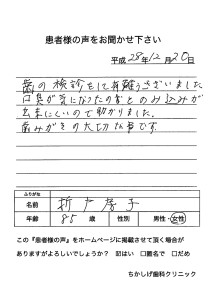 患者様の声をお聞かせ下さい
平成28年12月20日
歯の検診をして有難うございました
口臭が気になったのあとのみ込みが
出来にくいので助かりました。
歯みがきの大切な事です。
ふりがな
名前 折戸孝子
年齢 85 歳 性別 男性・女性
この『患者様の声』をホームページに掲載させて頂く場合が
ありますがよろしいでしょうか? 初はい □匿名で □だめ
ちかしげ歯科クリニック